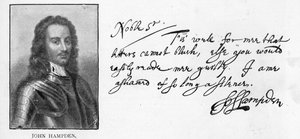 Noble Sr.
Tis well for mee that
letters cannot blush, else you would
easily reade mee guilty. I am
ashamed of so long a silence.
Jo. Hampden
JOHN HAMPDEN,